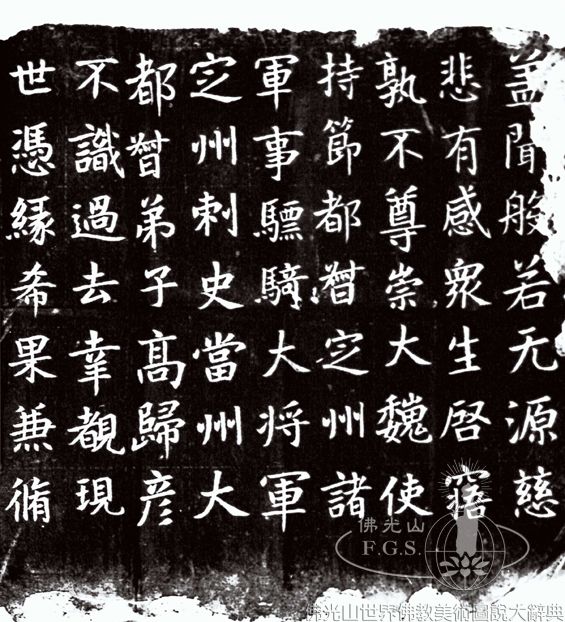 盖聞般若无源慈
悲有感衆生啓寤
孰不尊崇大魏使
持節都督定州諸
軍事驃騎大将軍
定州刺史當州大
都督弟子高歸彦
不識過去幸覩現
世憑縁希果兼脩
佛光山
F.G.S.
佛光山世界佛教美術圖說大辭典